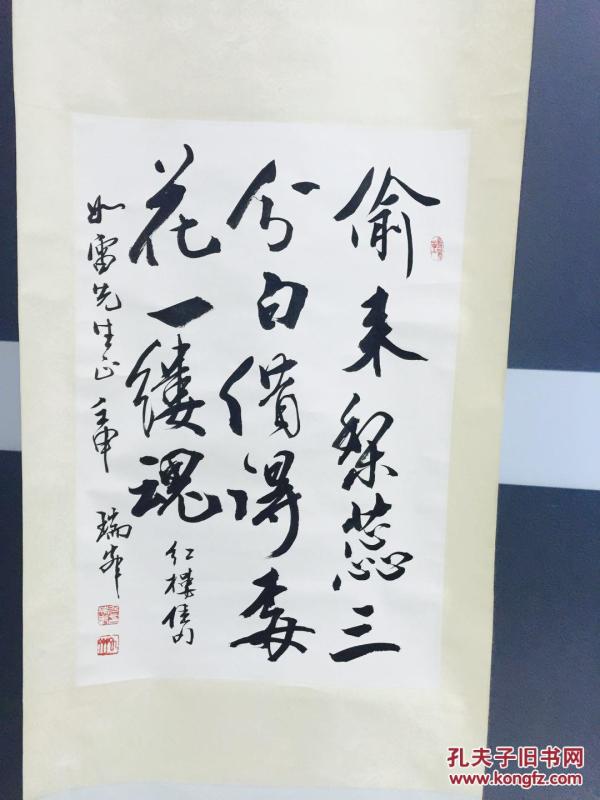 偷来梨蕊三
分白借得梅
花一缕魂
红楼佳句
如雷先生正 壬申 瑞峰
孔夫子旧书网
www.kongfz.com